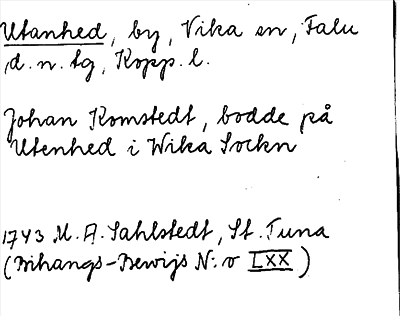 Utanhed, by, Vika sn, Falu
d.n. tg, Kopp. l.
Johan Komstedt, bodde på
Utenhed i Wika Sockn
1743 M. A. Sahlstedt, St. Tuna
(Bihangs-Bewijs N:o LXX)